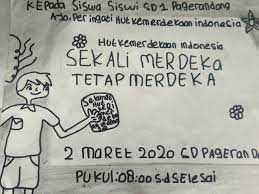 KEPada Siswa Siswi SD1 Pagerandong
Ayo, Peringati HutKemerdekaan indonesia
HutKemerdekaan Indonesia
SEKALI MERDEKA
TETAP MERDEKA
Selamat
Hut RI
2 MARET 2020 SD PAGERAN
PUKUL:08:00 s.d SElESai